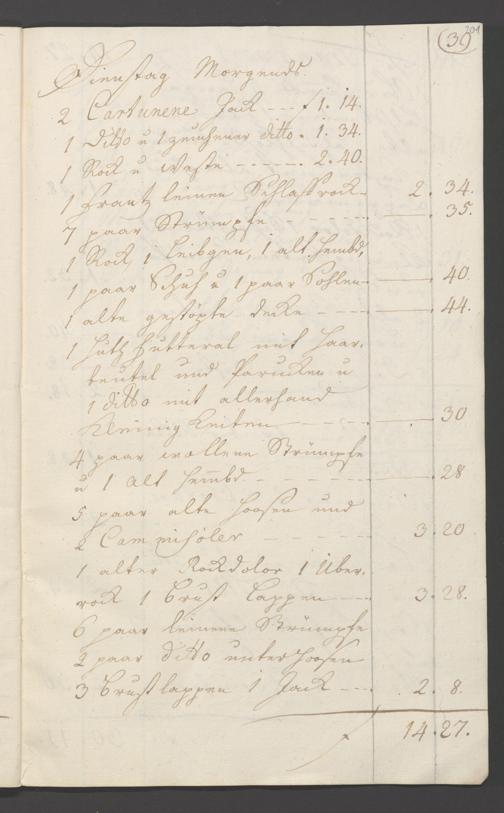 39
204
Dienstag Morgends.
2 Cartunene Jack --- f 1. 14.
1 Ditto u 1 ditto. 1. 34.
1 Rock u Weste ---- 2. 40.
1 Frantz leinen Schlaffrock - 2. 34.
7 paar Strümpfe - - - - 35.
1 Rock, 1 Leibgen, 1 alt Hembd,
1 paar Schuh u 1 paar Sohlen - 40.
1 alte gestopte decke - - - 44.
1 Huth Futteral mit Haar-
beutel und Parucken u
1 ditto mit allerhand
Kleinig Keiten - - - 30
4 paar wollene Strümpfe
u 1 alt Hembd - - - 28
5 paar alte Hoosen und
2 Camihsöler - - - 3. 20
1 alter Rockdolor 1 Uber-
rock 1 Brust Lappen --- 3. 28.
6 paar leinene Strümpfe
2 paar ditto unter Hoosen
3 Brustlappen 1 Jack --- 2. 8.
14. 27.